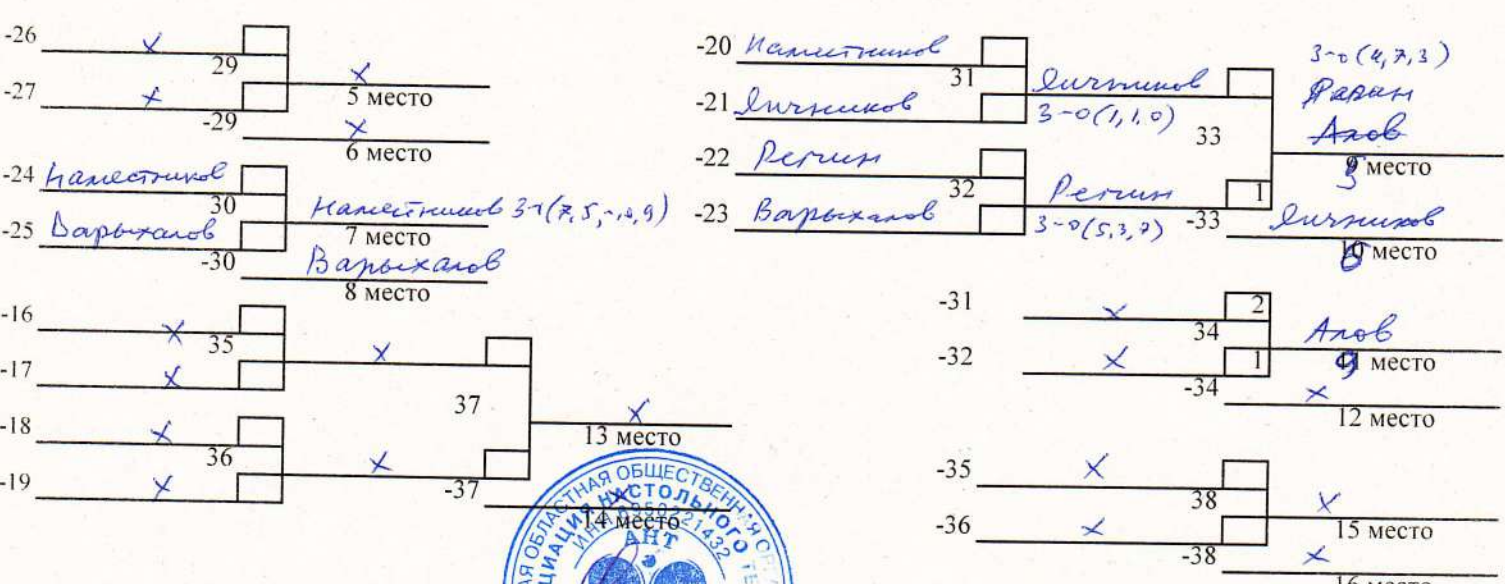 -26 х
29
-27 х
х
5 место
-29 х
6 место
-24 Наместников
30
-25 Варыхалов
Наместников 3-1 (7,5,-10,9)
7 место
-30 Варыхалов
8 место
-16 х
35
-17 х
х
-18 х
36
-19 х
х
37
х
13 место
-37 х
14 место
-20 Наместников
31
-21 Яичников
Яичников
3-0 (1,1,0)
-22 Репин
32
-23 Варыхалов
Репин
3-0 (5,3,7)
33
1
3-0 (4,7,3)
Аков
9 место
5
-33 Яичников
10 место
6
-31 х
2
34
-32 х
1
Аков
11 место
9
-34 х
12 место
-35 х
38
-36 х
х
15 место
-38 х
16 место
АЯ ОБЛАСТНАЯ ОБЩЕСТВЕННАЯ
НАСТОЛЬНОГО
ИНН 6950221432
АНТ